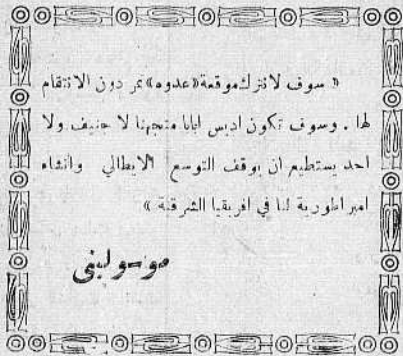 « سوف لا نترك موقعة «عدوه» تمر دون الانتقام
لها . وسوف تكون اديس ابابا متجهنا لا جنيف ولا
احد يستطيع ان يوقف التوسع الايطالي وانشاء
امبراطورية لنا في افريقيا الشرقية »
موسوليني